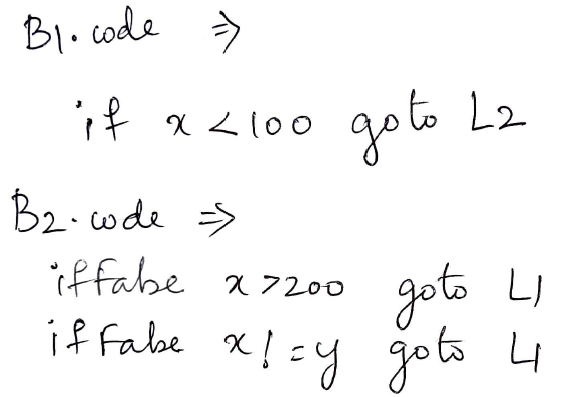 B1.code ⇒
if x < 100 goto L2
B2.code ⇒
iffalse x > 200 goto L1
if False x! = y goto L1